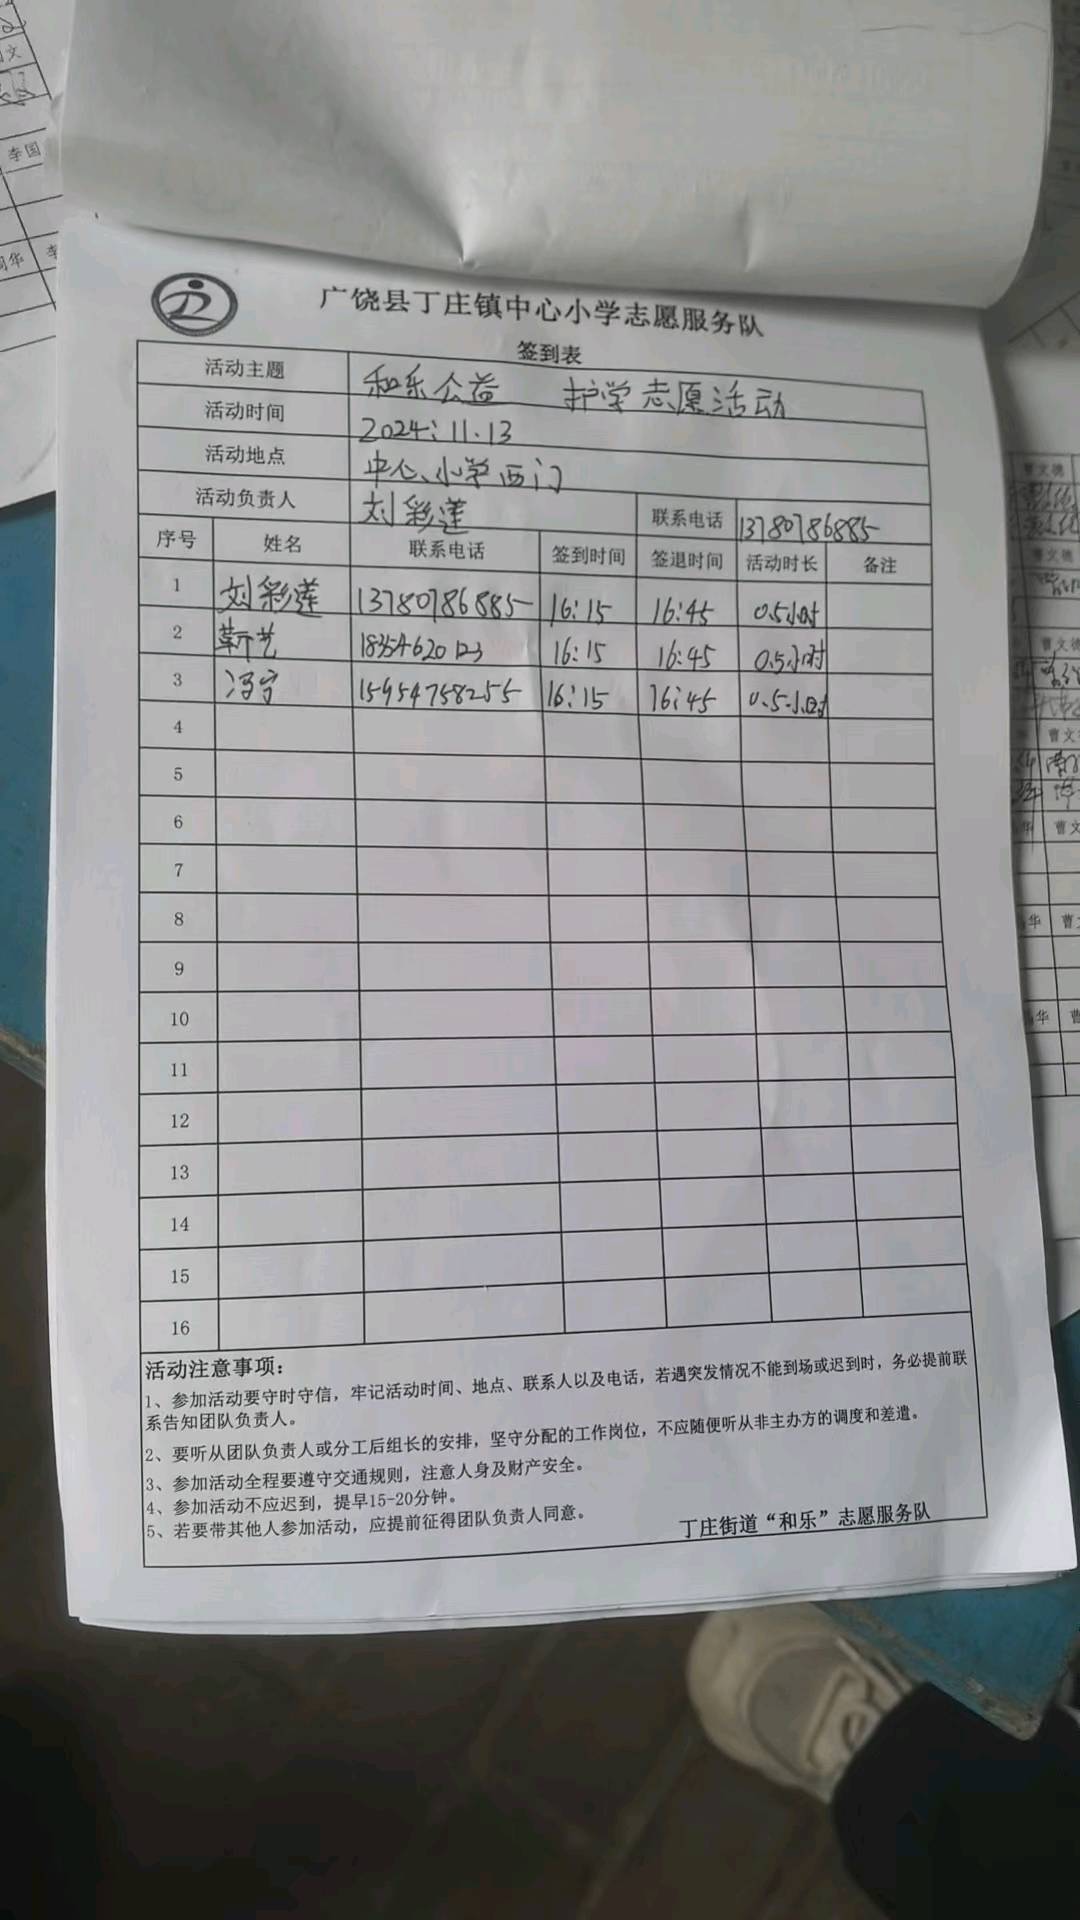 广饶县丁庄镇中心小学志愿服务队
签到表
活动主题 和乐公益 护学志愿活动
活动时间 2024.11.13
活动地点 中心小学西门
活动负责人 刘彩莲 联系电话 13780786885
序号 姓名 联系电话 签到时间 签退时间 活动时长 备注
1 刘彩莲 13780786885 16:15 16:45 0.5小时
2 靳艺 18354620123 16:15 16:45 0.5小时
3 冯宁 15954758255 16:15 16:45 0.5小时
4
5
6
7
8
9
10
11
12
13
14
15
16
活动注意事项:
1、参加活动要守时守信，牢记活动时间、地点、联系人以及电话，若遇突发情况不能到场或迟到时，务必提前联
系告知团队负责人。
2、要听从团队负责人或分工后组长的安排，坚守分配的工作岗位，不应随便听从非主办方的调度和差遣。
3、参加活动全程要遵守交通规则，注意人身及财产安全。
4、参加活动不应迟到，提早15-20分钟。
5、若要带其他人参加活动，应提前征得团队负责人同意。
丁庄街道“和乐”志愿服务队
文
李国
华
曹文德
曹文德
曹文德
曹文
华 曹文
华 曹
华